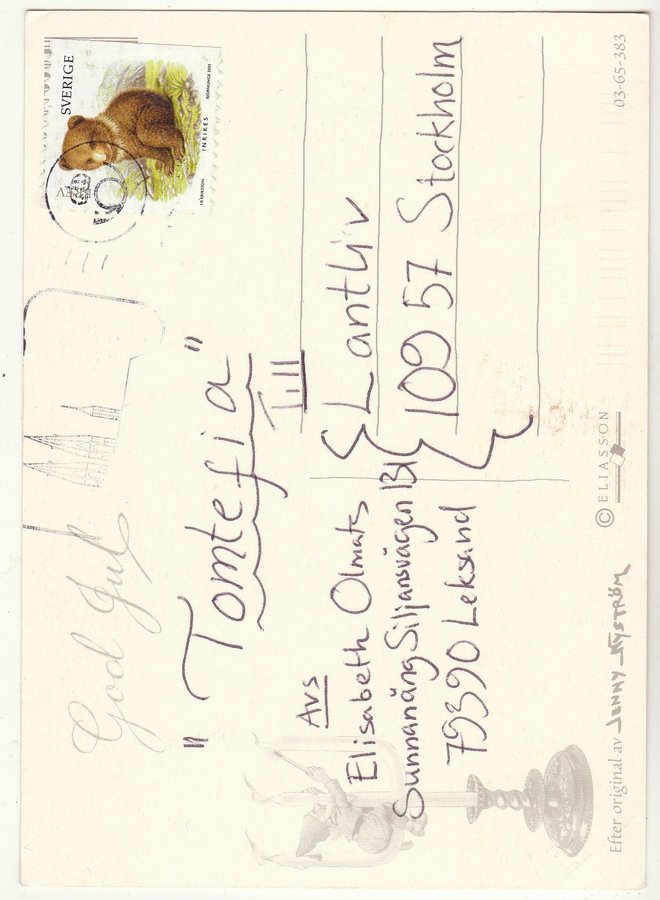 God Jul
"Tomtefia"
Till
Lantliv
109 57 Stockholm
Avs
Elisabeth Olmats
Sunnanäng Siljansvägen 131
79390 Leksand
SVERIGE
INRIKES
BREV
Efter original av JENNY NYSTRÖM
© ELIASSON
03-65-383